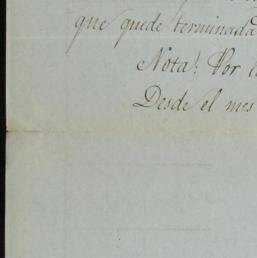 que quede terminada
Nota! Por l
Desde el mes